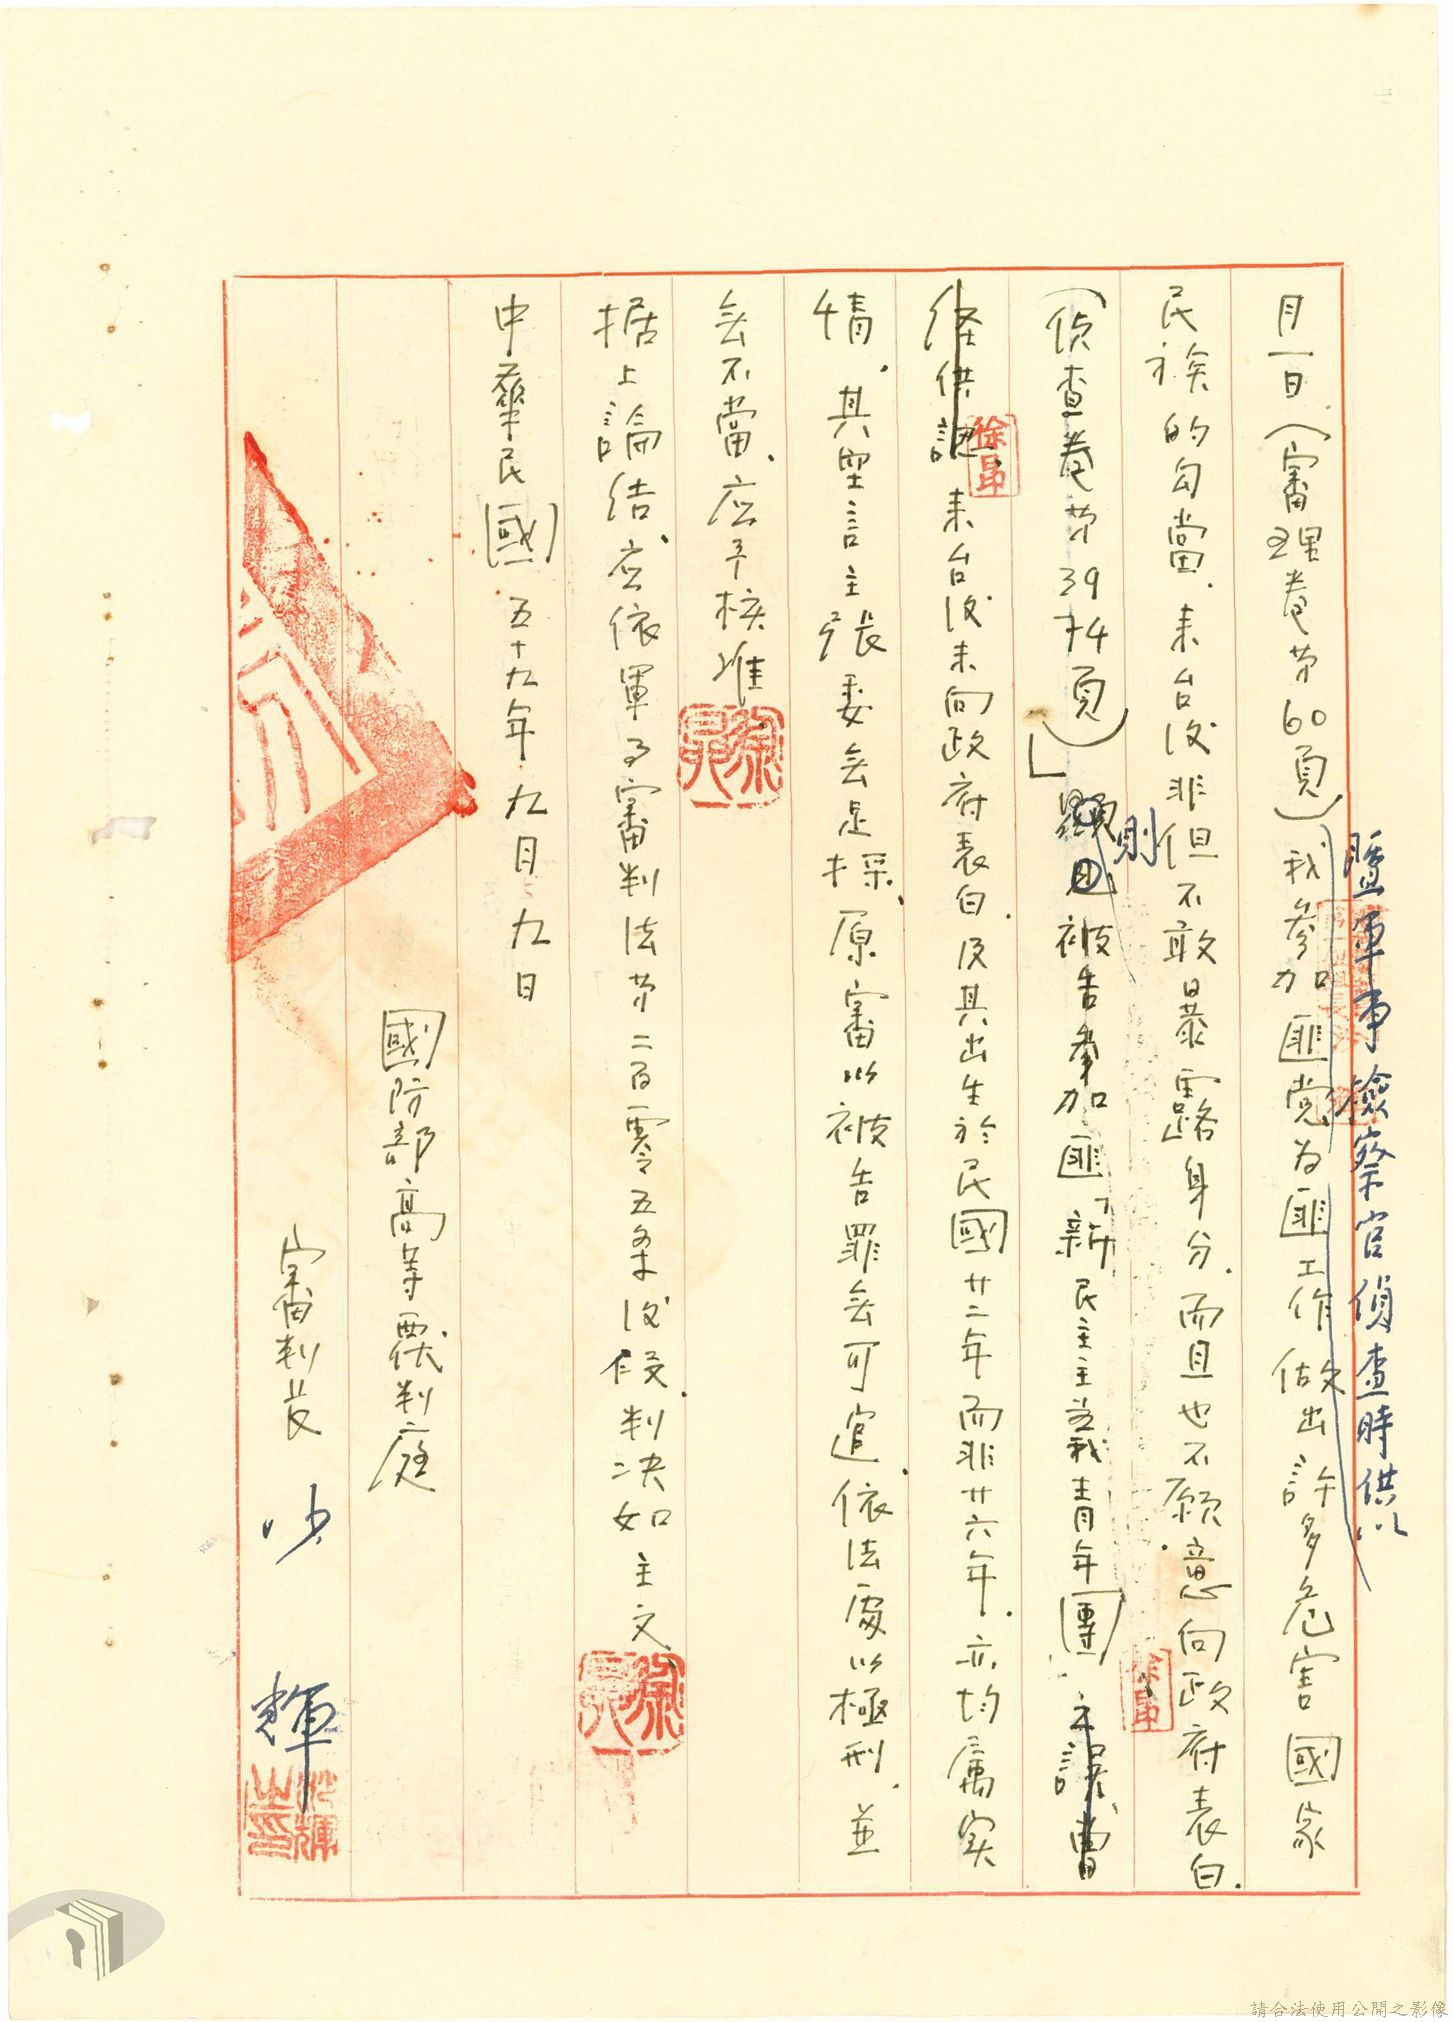 暨軍事檢察官偵查時供以
月一日（審理卷第60頁）我參加匪党为匪工作做出許多危害國家
民族的勾當．来台後非但不敢暴露身分．而且也不願意向政府表白．
則
（偵查卷第39 74頁）」顯見被告參加匪「新民主主義青年團」之謀、曾
經供認、来台後未向政府表白．及其出生於民國廿二年而非廿六年．亦均属实
情．其空言主張委無足採、原審以被告罪無可逭、依法處以極刑．並
無不當、应予核准．
据上論结、应依軍事審判法第二百零五条後段．判决如主文、
中華民國五十九年九月九日
國防部高等覆判庭
審判長 沙 輝
徐昂
徐昂
沙輝之印
請合法使用公開之影像